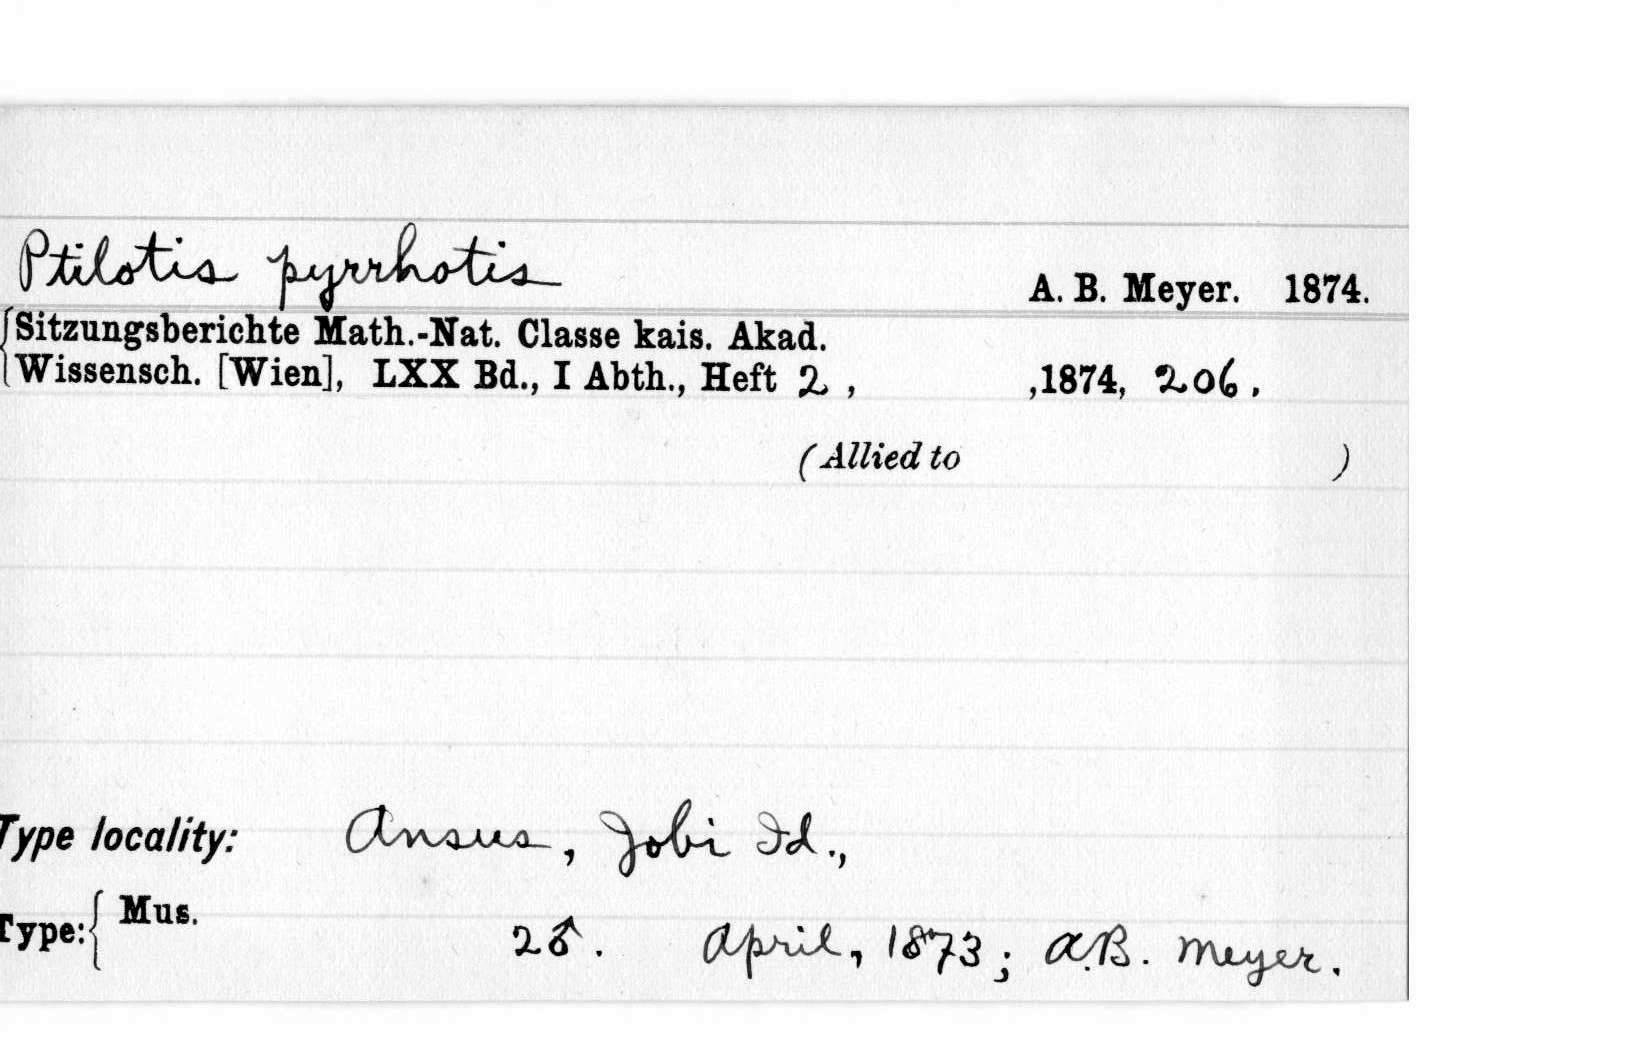 Ptilotis pyrrhotis A. B. Meyer. 1874.
Sitzungsberichte Math.-Nat. Classe kais. Akad.
Wissensch. [Wien], LXX Bd., I Abth., Heft 2 , ,1874, 206.
(Allied to )
Type locality: Ansus, Jobi Id.,
Type: Mus.
2♂. April, 1873; A.B. Meyer.